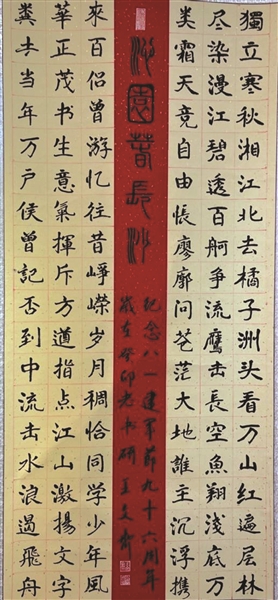 獨立寒秋湘江北去橘子洲头看万山红遍层林
尽染漫江碧透百舸争流鷹击長空魚翔浅底万
类霜天竞自由怅廖廓问苍茫大地誰主沉浮携
沁園春長沙
纪念八一建军節九十六周年
歲在癸卯老书研王文
來百侣曾游忆往昔峥嵘岁月稠恰同学少年風
華正茂书生意氣揮斥方遒指点江山激揚文字
糞土当年万户侯曾記否到中流击水浪遏飞舟